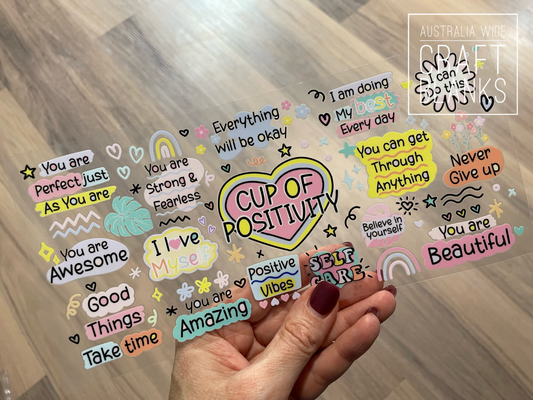 AUSTRALIA WIDE
CRAFT
BLANKS
You are
Perfect just
As You are
You are
Strong &
Fearless
Everything
will be okay
I am doing
My best
Every day
I can
do this
You can get
Through
Anything
Never
Give up
CUP OF
POSITIVITY
You are
Awesome
I love
Myself
Believe in
yourself
You are
Beautiful
Positive
Vibes
SELF
CARE
Good
Things
Take time
You are
Amazing